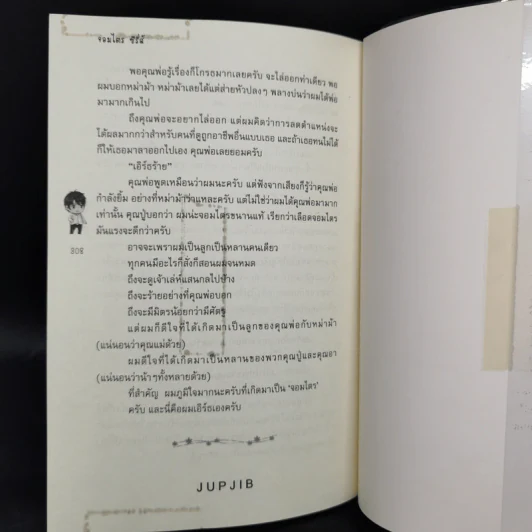 จอมไตร ซีรีส์
พอคุณพ่อรู้เรื่องก็โกรธมากเลยครับ จะไล่ออกท่าเดียว พอ
ผมบอกหม่าม้า หม่าม้าเลยได้แต่ส่ายหัวปลงๆ พลางบ่นว่าผมได้พ่อ
มามากเกินไป
ถึงคุณพ่อจะอยากไล่ออก แต่ผมคิดว่าการลดตำแหน่งจะ
ได้ผลมากกว่าสำหรับคนที่ดูถูกอาชีพอื่นแบบเธอ และถ้าเธอทนไม่ได้
ก็ให้เธอมาลาออกไปเอง คุณพ่อเลยยอมครับ
“เอิร์ธร้าย”
คุณพ่อพูดเหมือนว่าผมนะครับ แต่ฟังจากเสียงก็รู้ว่าคุณพ่อ
กำลังยิ้ม อย่างที่หม่าม้าว่าแหละครับ แต่ไม่ใช่ว่าผมได้คุณพ่อมามาก
เท่านั้น คุณปู่บอกว่า ผมน่ะจอมไตรขนานแท้ เรียกว่าเลือดจอมไตร
มันแรงจะดีกว่าครับ
308
อาจจะเพราะผมเป็นลูกเป็นหลานคนเดียว
ทุกคนมีอะไรก็สั่งก็สอนผมจนหมด
ถึงจะดูเจ้าเล่ห์แสนกลไปบ้าง
ถึงจะร้ายอย่างที่คุณพ่อบอก
ถึงจะมีมิตรน้อยกว่ามีศัตรู
แต่ผมก็ดีใจที่ได้เกิดมาเป็นลูกของคุณพ่อกับหม่าม้า
(แน่นอนว่าคุณแม่ด้วย)
ผมดีใจที่ได้เกิดมาเป็นหลานของพวกคุณปู่และคุณอา
(แน่นอนว่าน้าๆทั้งหลายด้วย)
ที่สำคัญ ผมภูมิใจมากนะครับที่เกิดมาเป็น ‘จอมไตร’
ครับ และนี่คือผมเอิร์ธเองครับ
JUPJIB